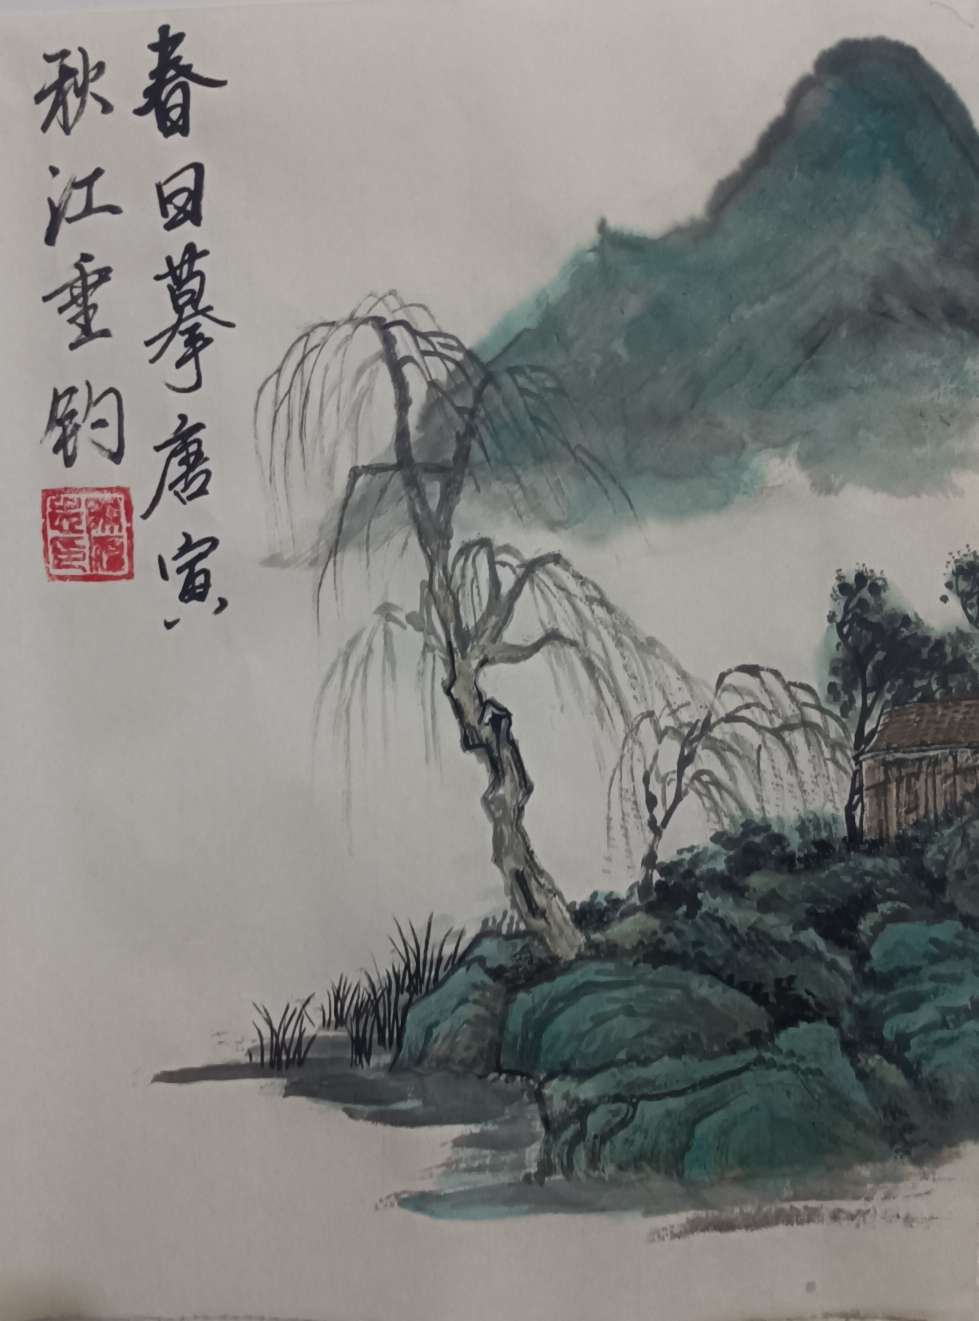 春日摹唐寅
秋江垂钓